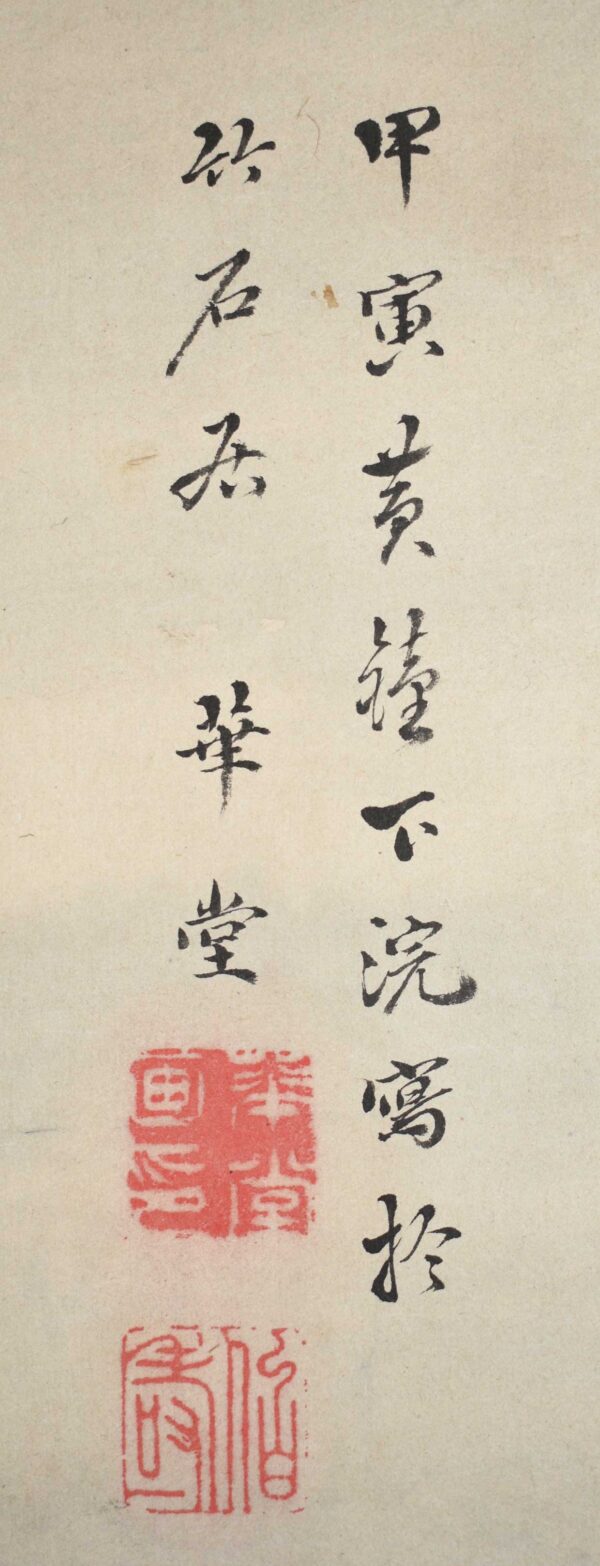 甲寅黄鐘下浣寫於
竹石居　華堂
華堂
画印